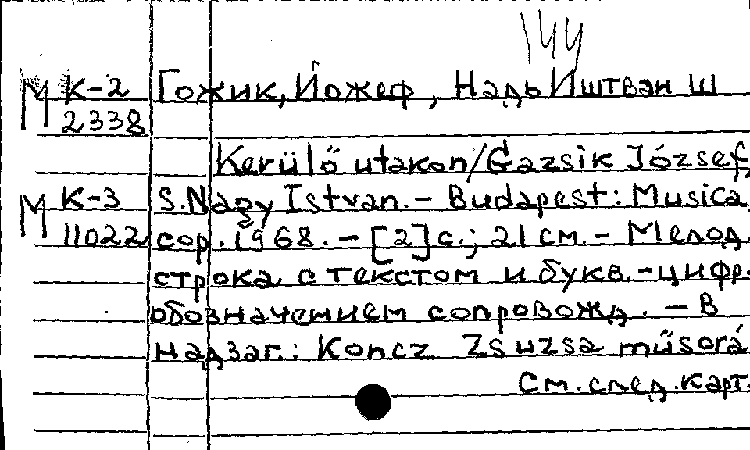 144
М К-2 Гожик, Йожеф, Надь Иштван Ш
2338
Kerülő utakon/Gazsik József,
М К-3 S. Nagy Istvan. - Budapest: Musica
11022 cop. 1968. - [2] с.; 21 см. - Мелод.
строка с текстом и букв.-цифр.
обозначением сопровожд. - В
надзаг.: Koncz Zsuzsa műsorá
См. след. карт.